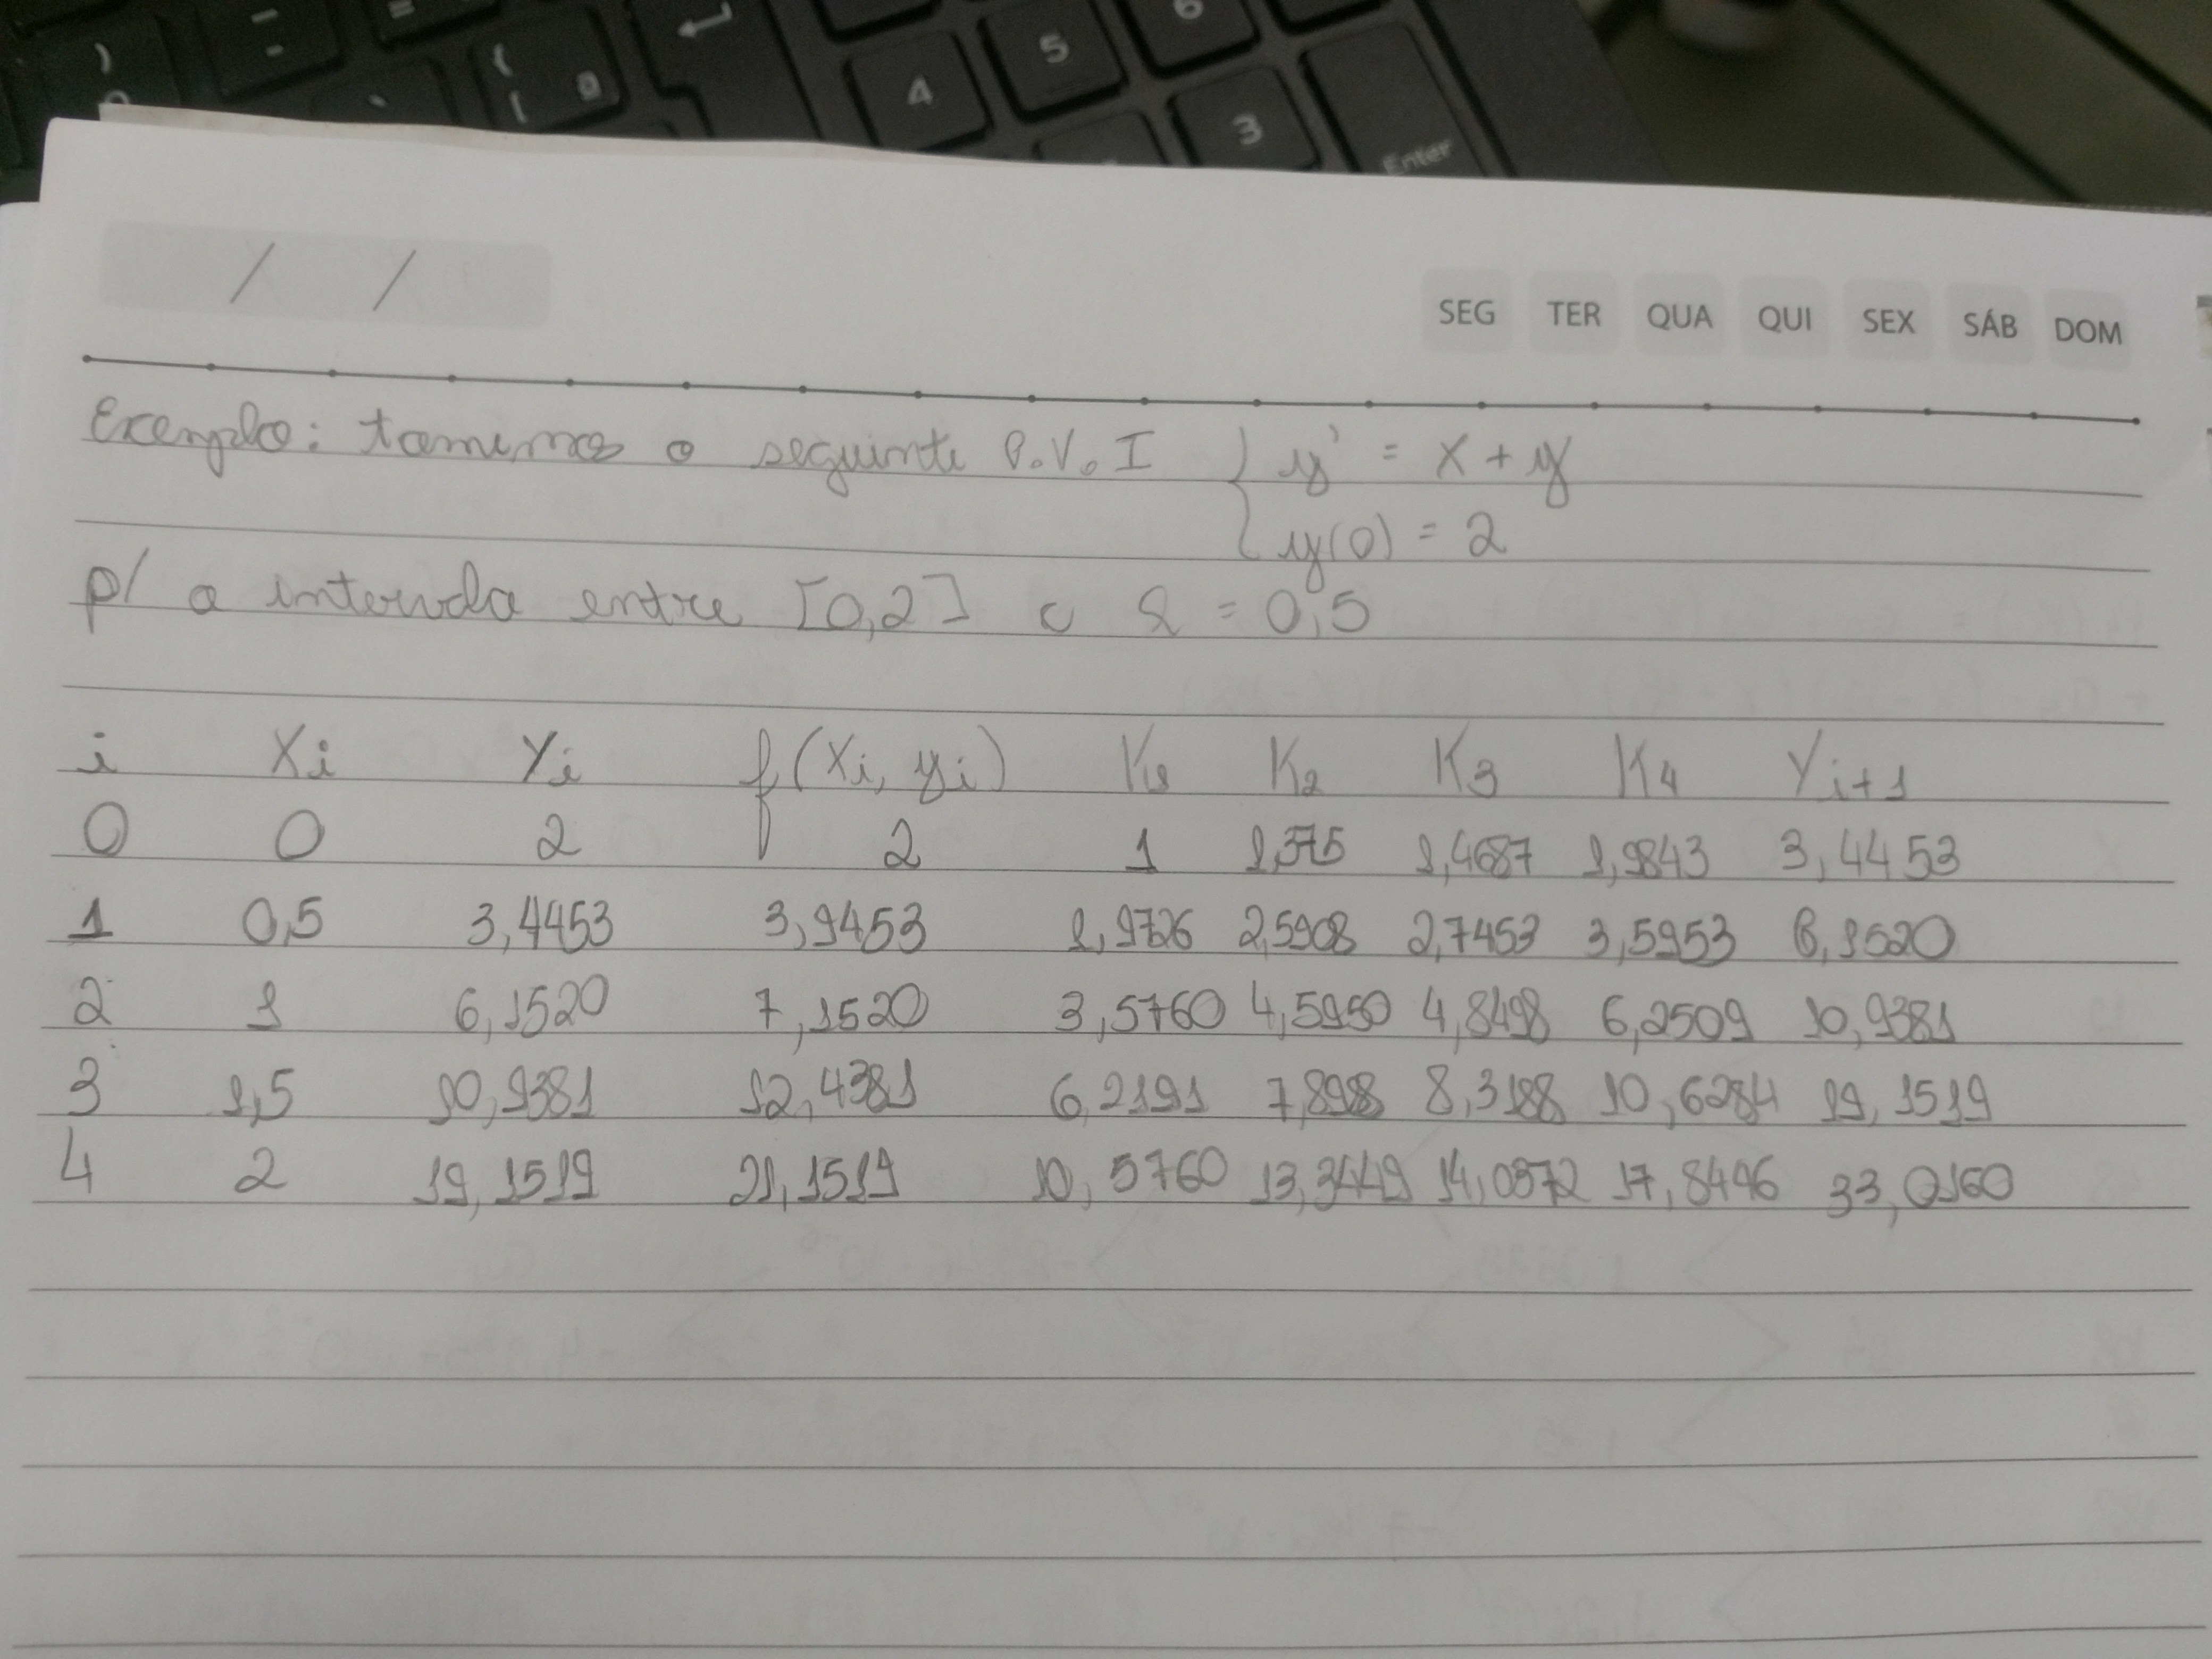 ) - =
{ [ ª ` 4 5 6
3 Enter
/ / SEG TER QUA QUI SEX SÁB DOM
Exemplo: tomemos o seguinte P.V.I { y' = x + y
y(0) = 2
p/ o intervalo entre [0,2] c h = 0,5
i Xi Yi f(Xi, yi) K1 K2 K3 K4 Yi+1
0 0 2 2 1 1,375 1,4687 1,9843 3,4453
1 0,5 3,4453 3,9453 1,9726 2,5908 2,7453 3,5953 6,1520
2 1 6,1520 7,1520 3,5760 4,5950 4,8498 6,2509 10,9381
3 1,5 10,9381 12,4381 6,2191 7,898 8,3188 10,6284 19,1519
4 2 19,1519 21,1519 10,5760 13,3449 14,0372 17,8446 33,0160